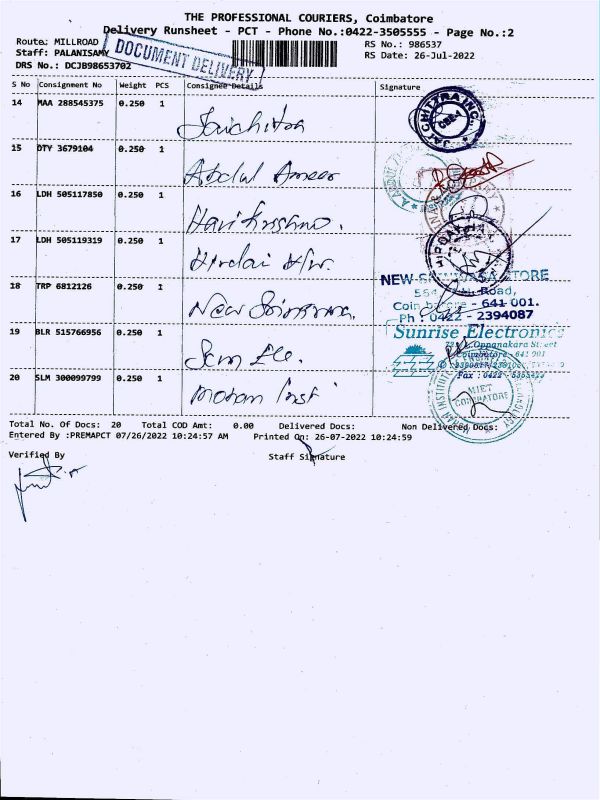 THE PROFESSIONAL COURIERS, Coimbatore
Delivery Runsheet - PCT - Phone No.:0422-3505555 - Page No.:2
Route: MILLROAD
RS No.: 986537
Staff: PALANISAMY
RS Date: 26-Jul-2022
DRS No.: DCJB98653702
DOCUMENT DELIVERY
S No Consignment No Weight PCS Consignee Details Signature
14 MAA 288545375 0.250 1 Jaichitra
JAI CHITRA INC. CBE-1
15 DTY 3679104 0.250 1 Abdul Ameer
16 LDH 505117850 0.250 1 Harikrishno.
17 LDH 505119319 0.250 1 H/w.
18 TRP 6812126 0.250 1 New
NEW STORE
Road,
641 001.
Ph : 0422 - 2394087
19 BLR 515766956 0.250 1 Sun Ele.
Sunrise Electronics
Oppanakara Street
Coimbatore - 641 001
Fax : 0422 -
20 SLM 300099799 0.250 1 Mohan Inst
MIET
COIMBATORE
Total No. Of Docs: 20 Total COD Amt: 0.00 Delivered Docs: Non Delivered Docs:
Entered By :PREMAPCT 07/26/2022 10:24:57 AM Printed On: 26-07-2022 10:24:59
Verified By Staff Signature